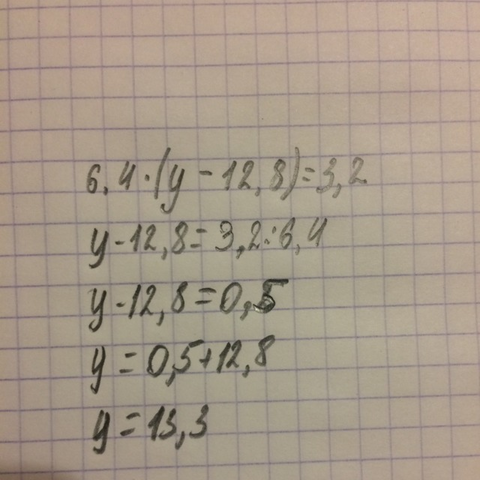 6,4·(y-12,8)=3,2
y-12,8=3,2:6,4
y-12,8=0,5
y=0,5+12,8
y=13,3